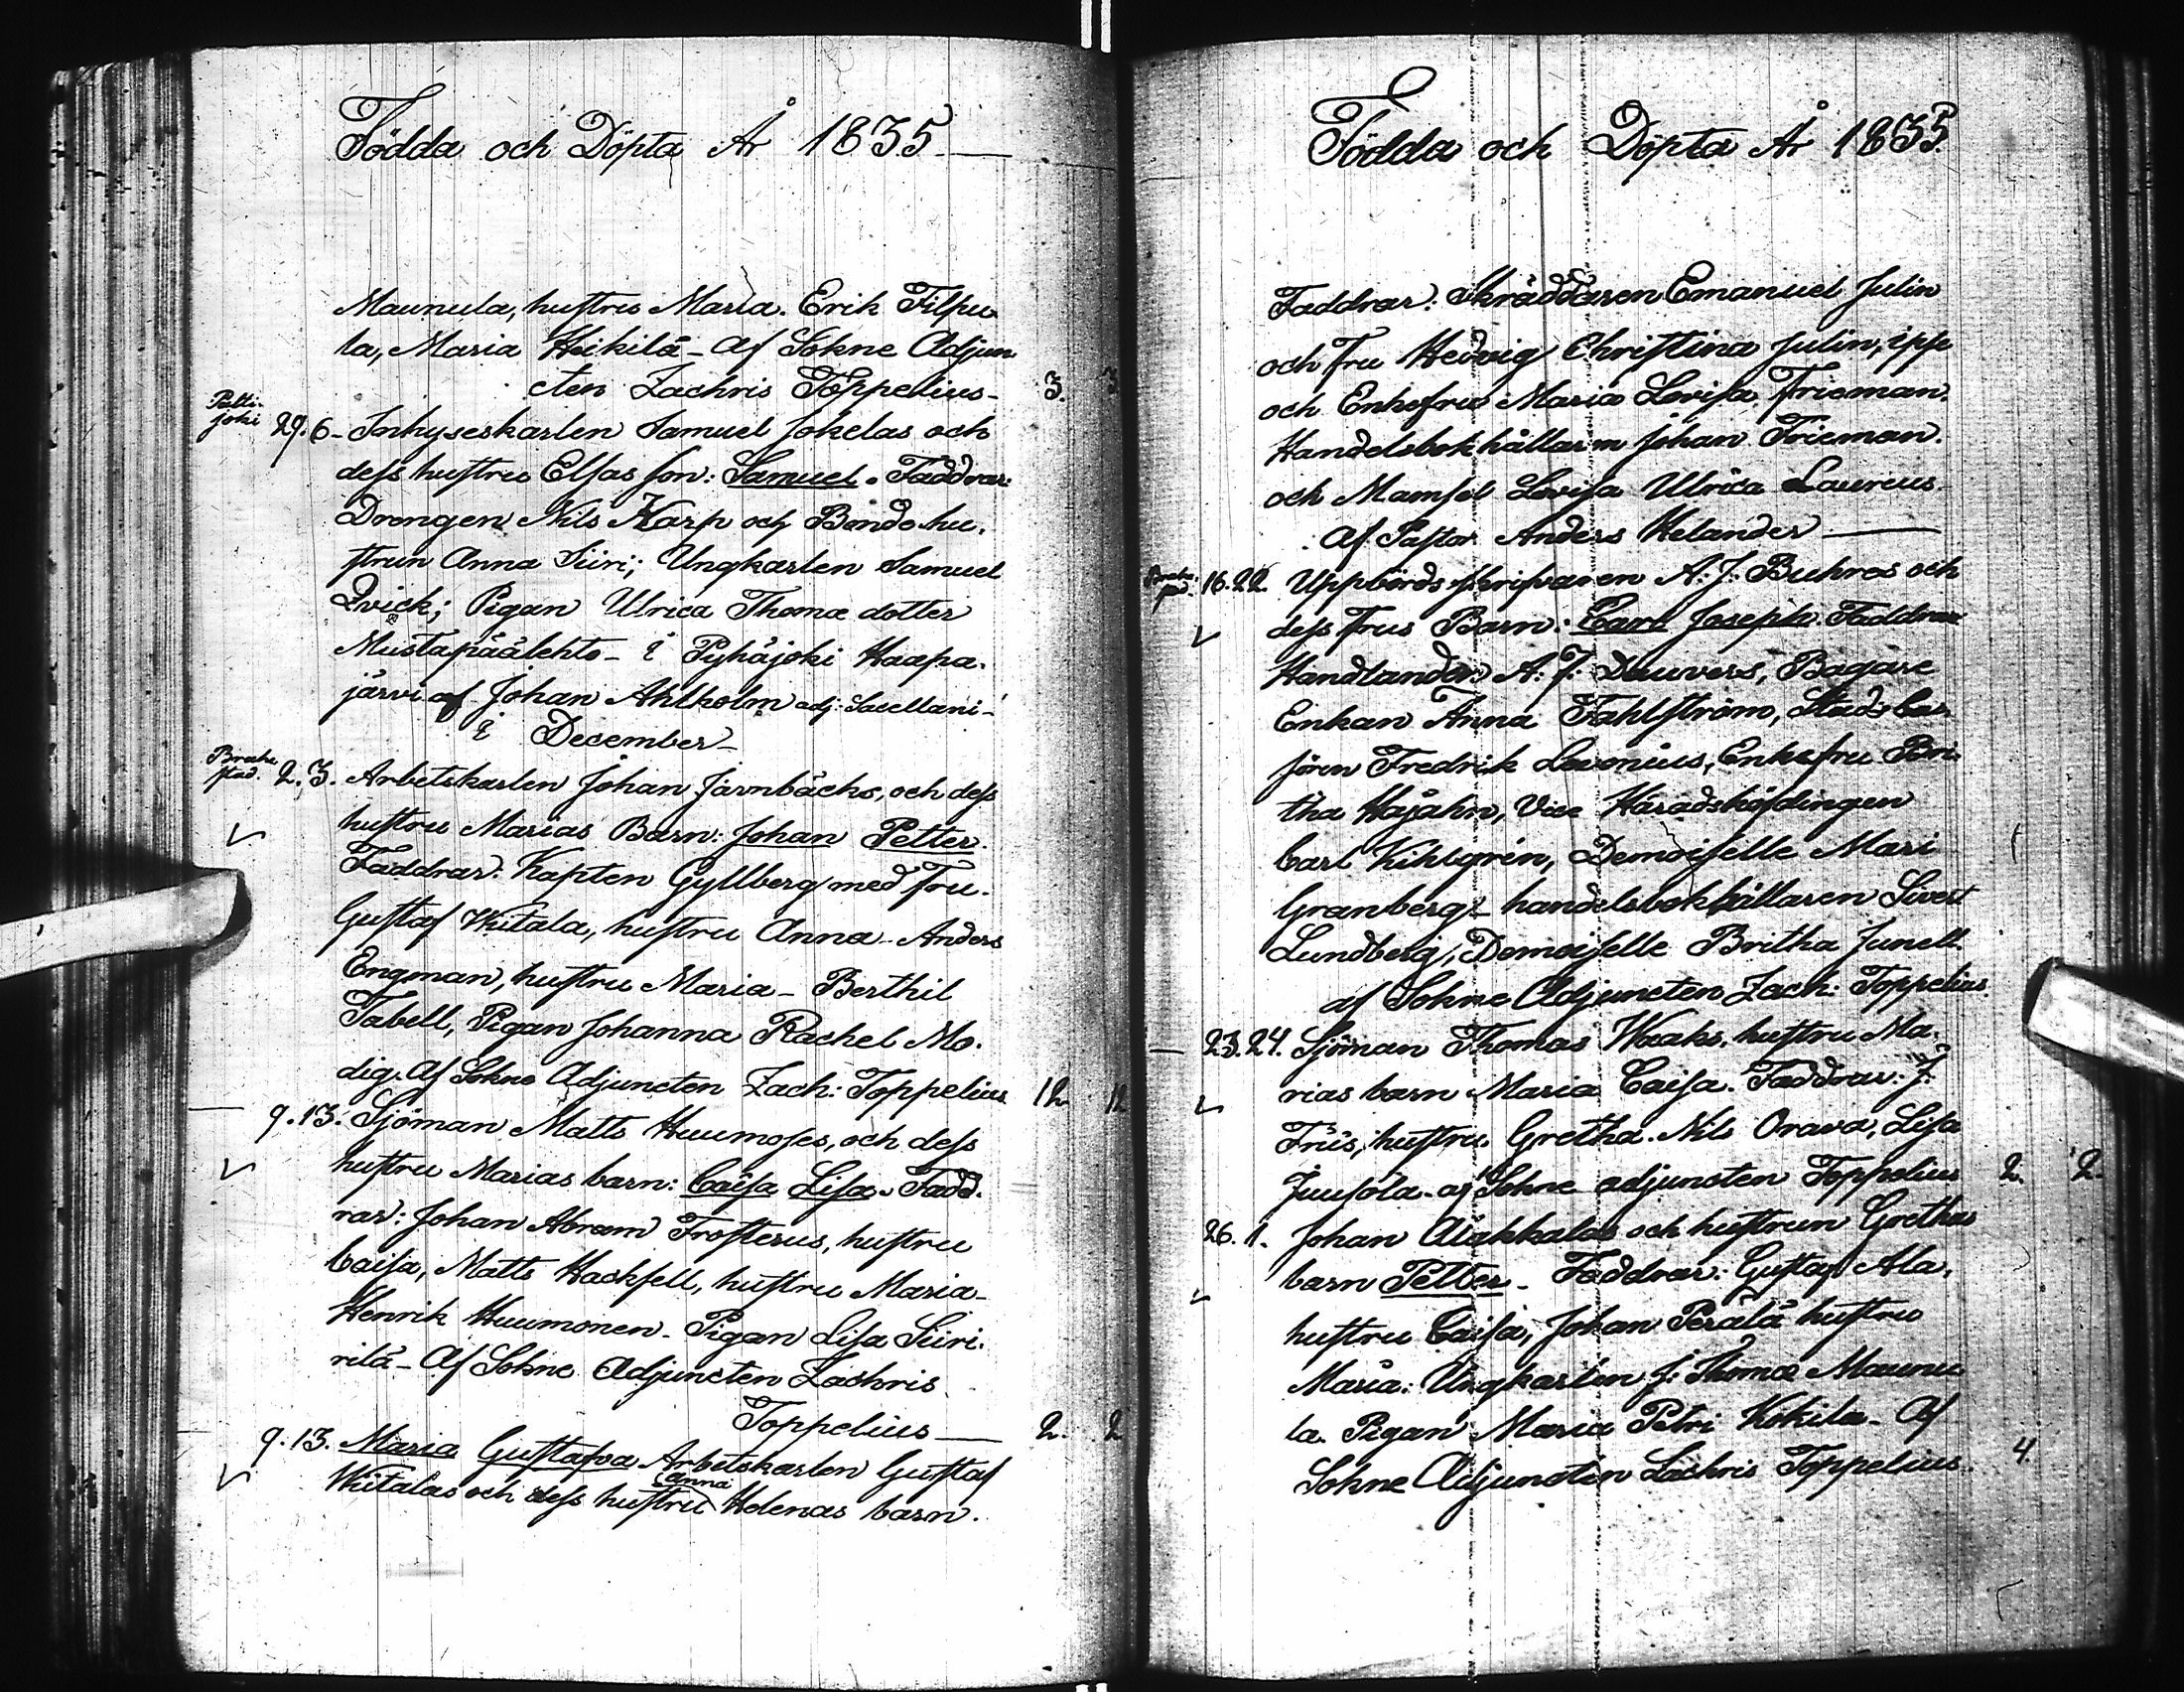 Födda och Döpta År 1835
Maunula, hustru Maria. Erik Filpu
la, Maria Heikilä - Af Sokne Adjun
cten Zachris Toppelius - 3. 3
Patti-
joki 29. 6 - Inhyseskarlen Samuel Jokelas och
dess hustru Elsas son: Samuel. Faddrar:
Drengen Nils Karp och Bonde hu.
strun Anna Siiri; Ungkarlen Samuel
Qvick; Pigan Ulrica Thomæ dotter
Mustapäälehto - i Pyhäjoki Haapa.
järvi af Johan Ahlholm adj: Sacellani -
i December -
Brahe
stad. 2. 3. Arbetskarlen Johan Järnbäcks, och dess
hustru Marias Barn: Johan Petter.
Faddrar: Kapten Gyllberg med Fru.
Gustaf Wiitala, hustru Anna - Anders
Engman, hustru Maria - Berthil
Tabell, Pigan Johanna Rachel Mo.
dig. Af Sokne Adjuncten Zach: Toppelius 12
9. 13. Sjöman Matts Huumoses, och dess
hustru Marias barn: Caisa Lisa. Fadd.
rar: Johan Abram Frosterus, hustru
Caisa, Matts Hacksell, hustru Maria -
Henrik Huumonen - Pigan Lisa Siiri.
rilä - Af Sokne Adjuncten Zachris
Toppelius 2. 2
9. 13. Maria Gustafva Arbetskarlen Gustaf
Wiitalas och dess hustru Anna Helenas barn.
Födda och Döpta År 1835
Faddrar: Skräddaren Emanuel Julin
och Fru Hedvig Christina Julin,
och Enkefru Maria Lovisa Frieman.
Handelsbokhållaren Johan Frieman.
och Mamsel Lovisa Ulrica Laureus.
Af Pastor Anders Helander
Brahe
stad. 16. 22. Uppbördsskrifvaren A: J: Buhres och
dess Frus Barn: Carl Joseph. Faddrar
Handlanden A: F: Dauvers, Bagare
Enkan Anna Fahlström, Stads Cas
sören Fredrik Levonius, Enkefru Bri
tha Häjahn, Vice Häradshöfdingen
Carl Kihlgrén, Demoiselle Mari
Granberg - handelsbokhållaren Sivert
Lundberg, Demoiselle Britha Junell.
af Sokne Adjuncten Zach: Toppelius.
23. 24. Sjöman Thomas Waaks, hustru Ma.
rias barn Maria Caisa. Faddrar: J:
Friis, hustru Gretha. Nils Orava, Lisa
Juusola - af Sokne adjuncten Toppelius 2. 2.
26. 1. Johan Alakkalas och hustrun Grethas
barn Petter - Faddrar: Gustaf Ala,
hustru Caisa, Johan Perälä hustru
Maria: Ungkarlen J: Thomæ Maunu
la. Pigan Maria Petri Kokila - Af
Sokne Adjuncten Zachris Toppelius. 4